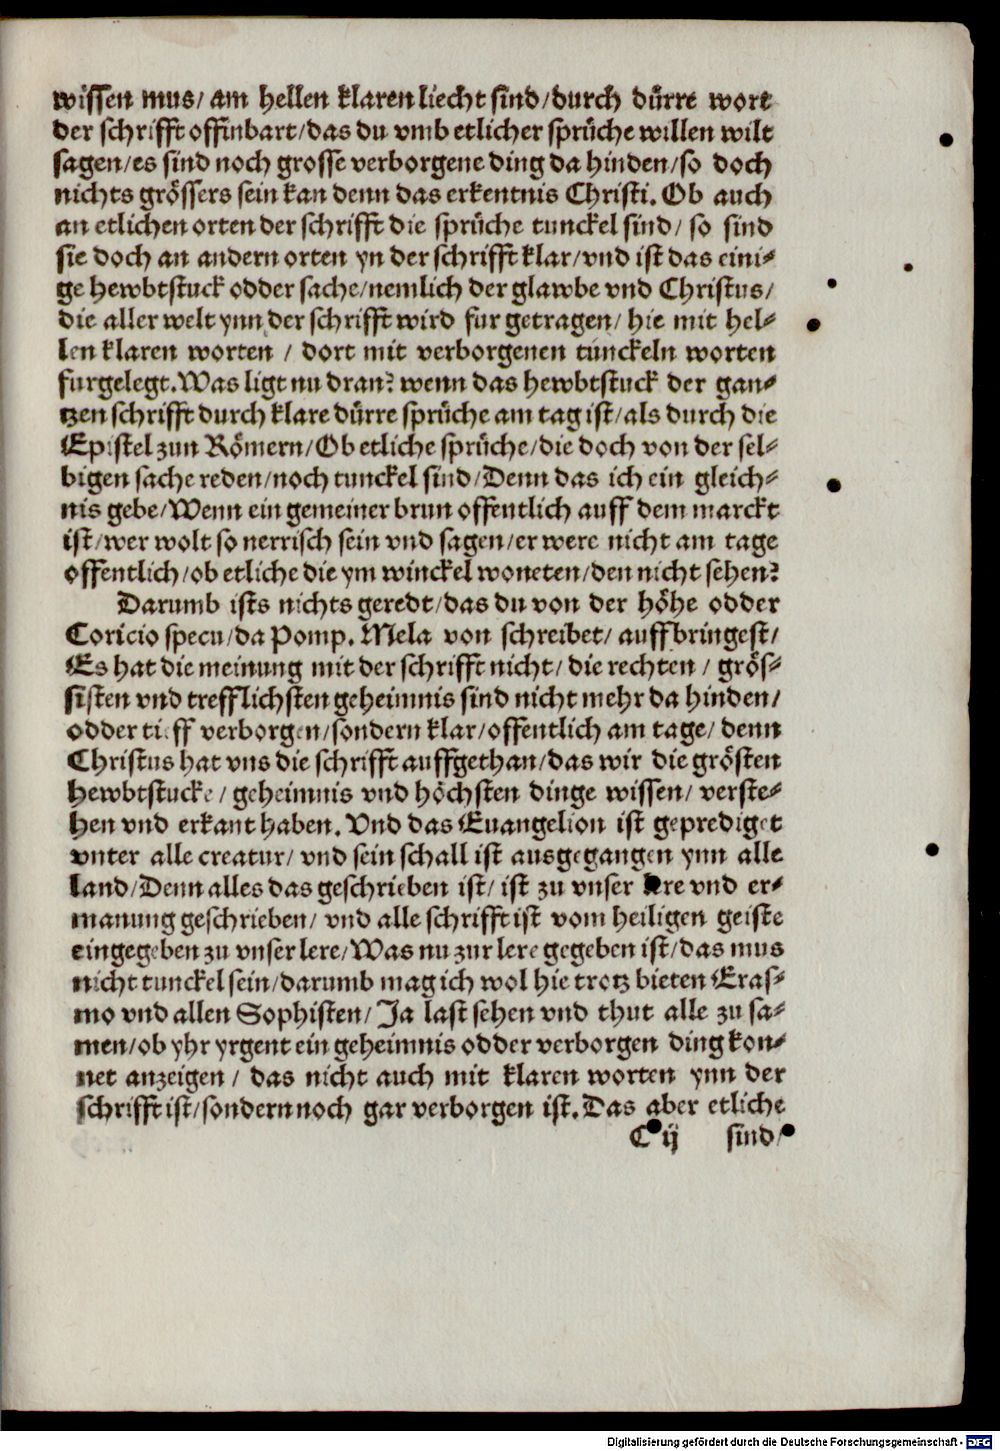 wissen mus/ am hellen klaren liecht sind/durch dürre wort
der schrifft offinbart/das du vmb etlicher sprüche willen wilt
sagen/es sind noch grosse verborgene ding da hinden/so doch
nichts grössers sein kan denn das erkentnis Christi. Ob auch
an etlichen orten der schrifft die sprüche tunckel sind/ so sind
sie doch an andern orten yn der schrifft klar/vnd ist das eini-
ge hewbtstuck odder sache/nemlich der glawbe vnd Christus/
die aller welt ynn der schrifft wird fur getragen/ hie mit hel-
len klaren worten / dort mit verborgenen tunckeln worten
furgelegt. Was ligt nu dran? wenn das hewbtstuck der gan-
tzen schrifft durch klare dürre sprüche am tag ist/als durch die
Epistel zun Römern/Ob etliche sprüche/die doch von der sel-
bigen sache reden/noch tunckel sind/Denn das ich ein gleich-
nis gebe/Wenn ein gemeiner brun offentlich auff dem marckt
ist/wer wolt so nerrisch sein vnd sagen/er were nicht am tage
offentlich/ob etliche die ym winckel woneten/den nicht sehen?
Darumb ists nichts geredt/das du von der höhe odder
Coricio specu/da Pomp. Mela von schreibet/ auffbringest/
Es hat die meinung mit der schrifft nicht/ die rechten / grös-
sisten vnd trefflichsten geheimnis sind nicht mehr da hinden/
odder tieff verborgen/sondern klar/offentlich am tage/ denn
Christus hat vns die schrifft auffgethan/das wir die grösten
hewbtstucke/ geheimnis vnd höchsten dinge wissen/ verste-
hen vnd erkant haben. Vnd das Euangelion ist geprediget
vnter alle creatur/ vnd sein schall ist ausgegangen ynn alle
land/Denn alles das geschrieben ist/ ist zu vnser lere vnd er-
manung geschrieben/ vnd alle schrifft ist vom heiligen geiste
eingegeben zu vnser lere/Was nu zur lere gegeben ist/das mus
nicht tunckel sein/darumb mag ich wol hie trotz bieten Eras-
mo vnd allen Sophisten/ Ja last sehen vnd thut alle zu sa-
men/ob yhr yrgent ein geheimnis odder verborgen ding kon-
net anzeigen/ das nicht auch mit klaren worten ynn der
schrifft ist/sondern noch gar verborgen ist. Das aber etliche
C ij sind/
Digitalisierung gefördert durch die Deutsche Forschungsgemeinschaft - DFG